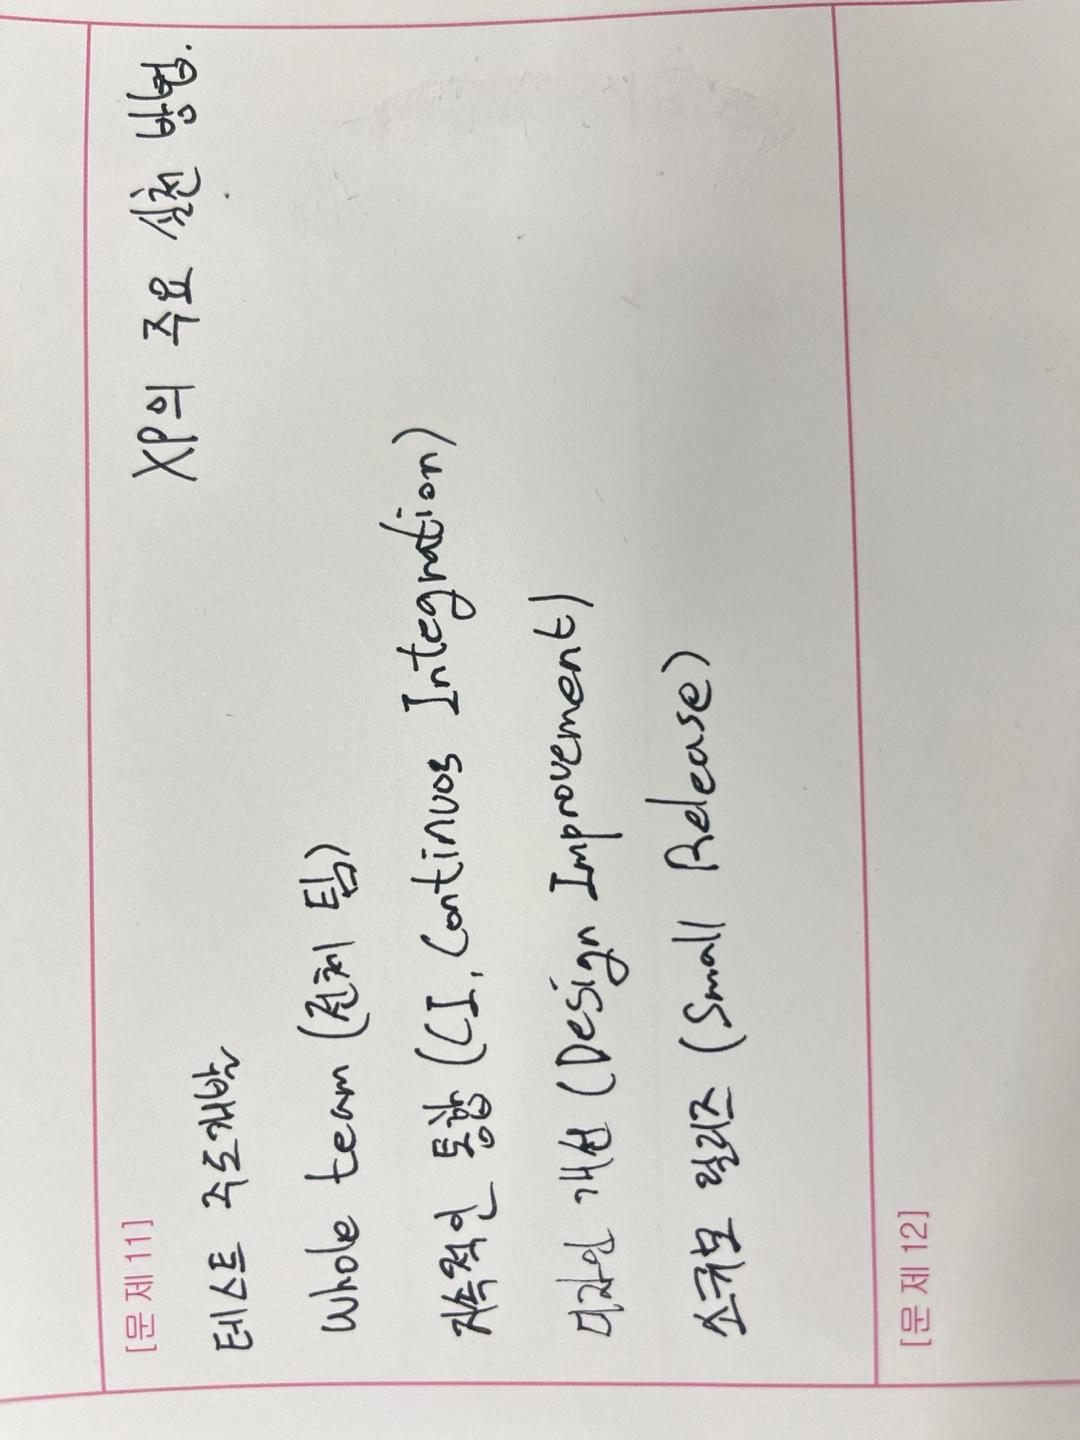 [문제 11]
XP의 주요 실천 방형.
테스트 주도개발
Whole team (전체 팀)
지속적인 통합 (CI, Continuos Integration)
디자인 개선 (Design Improvement)
소규모 릴리즈 (Small Release)
[문제 12]